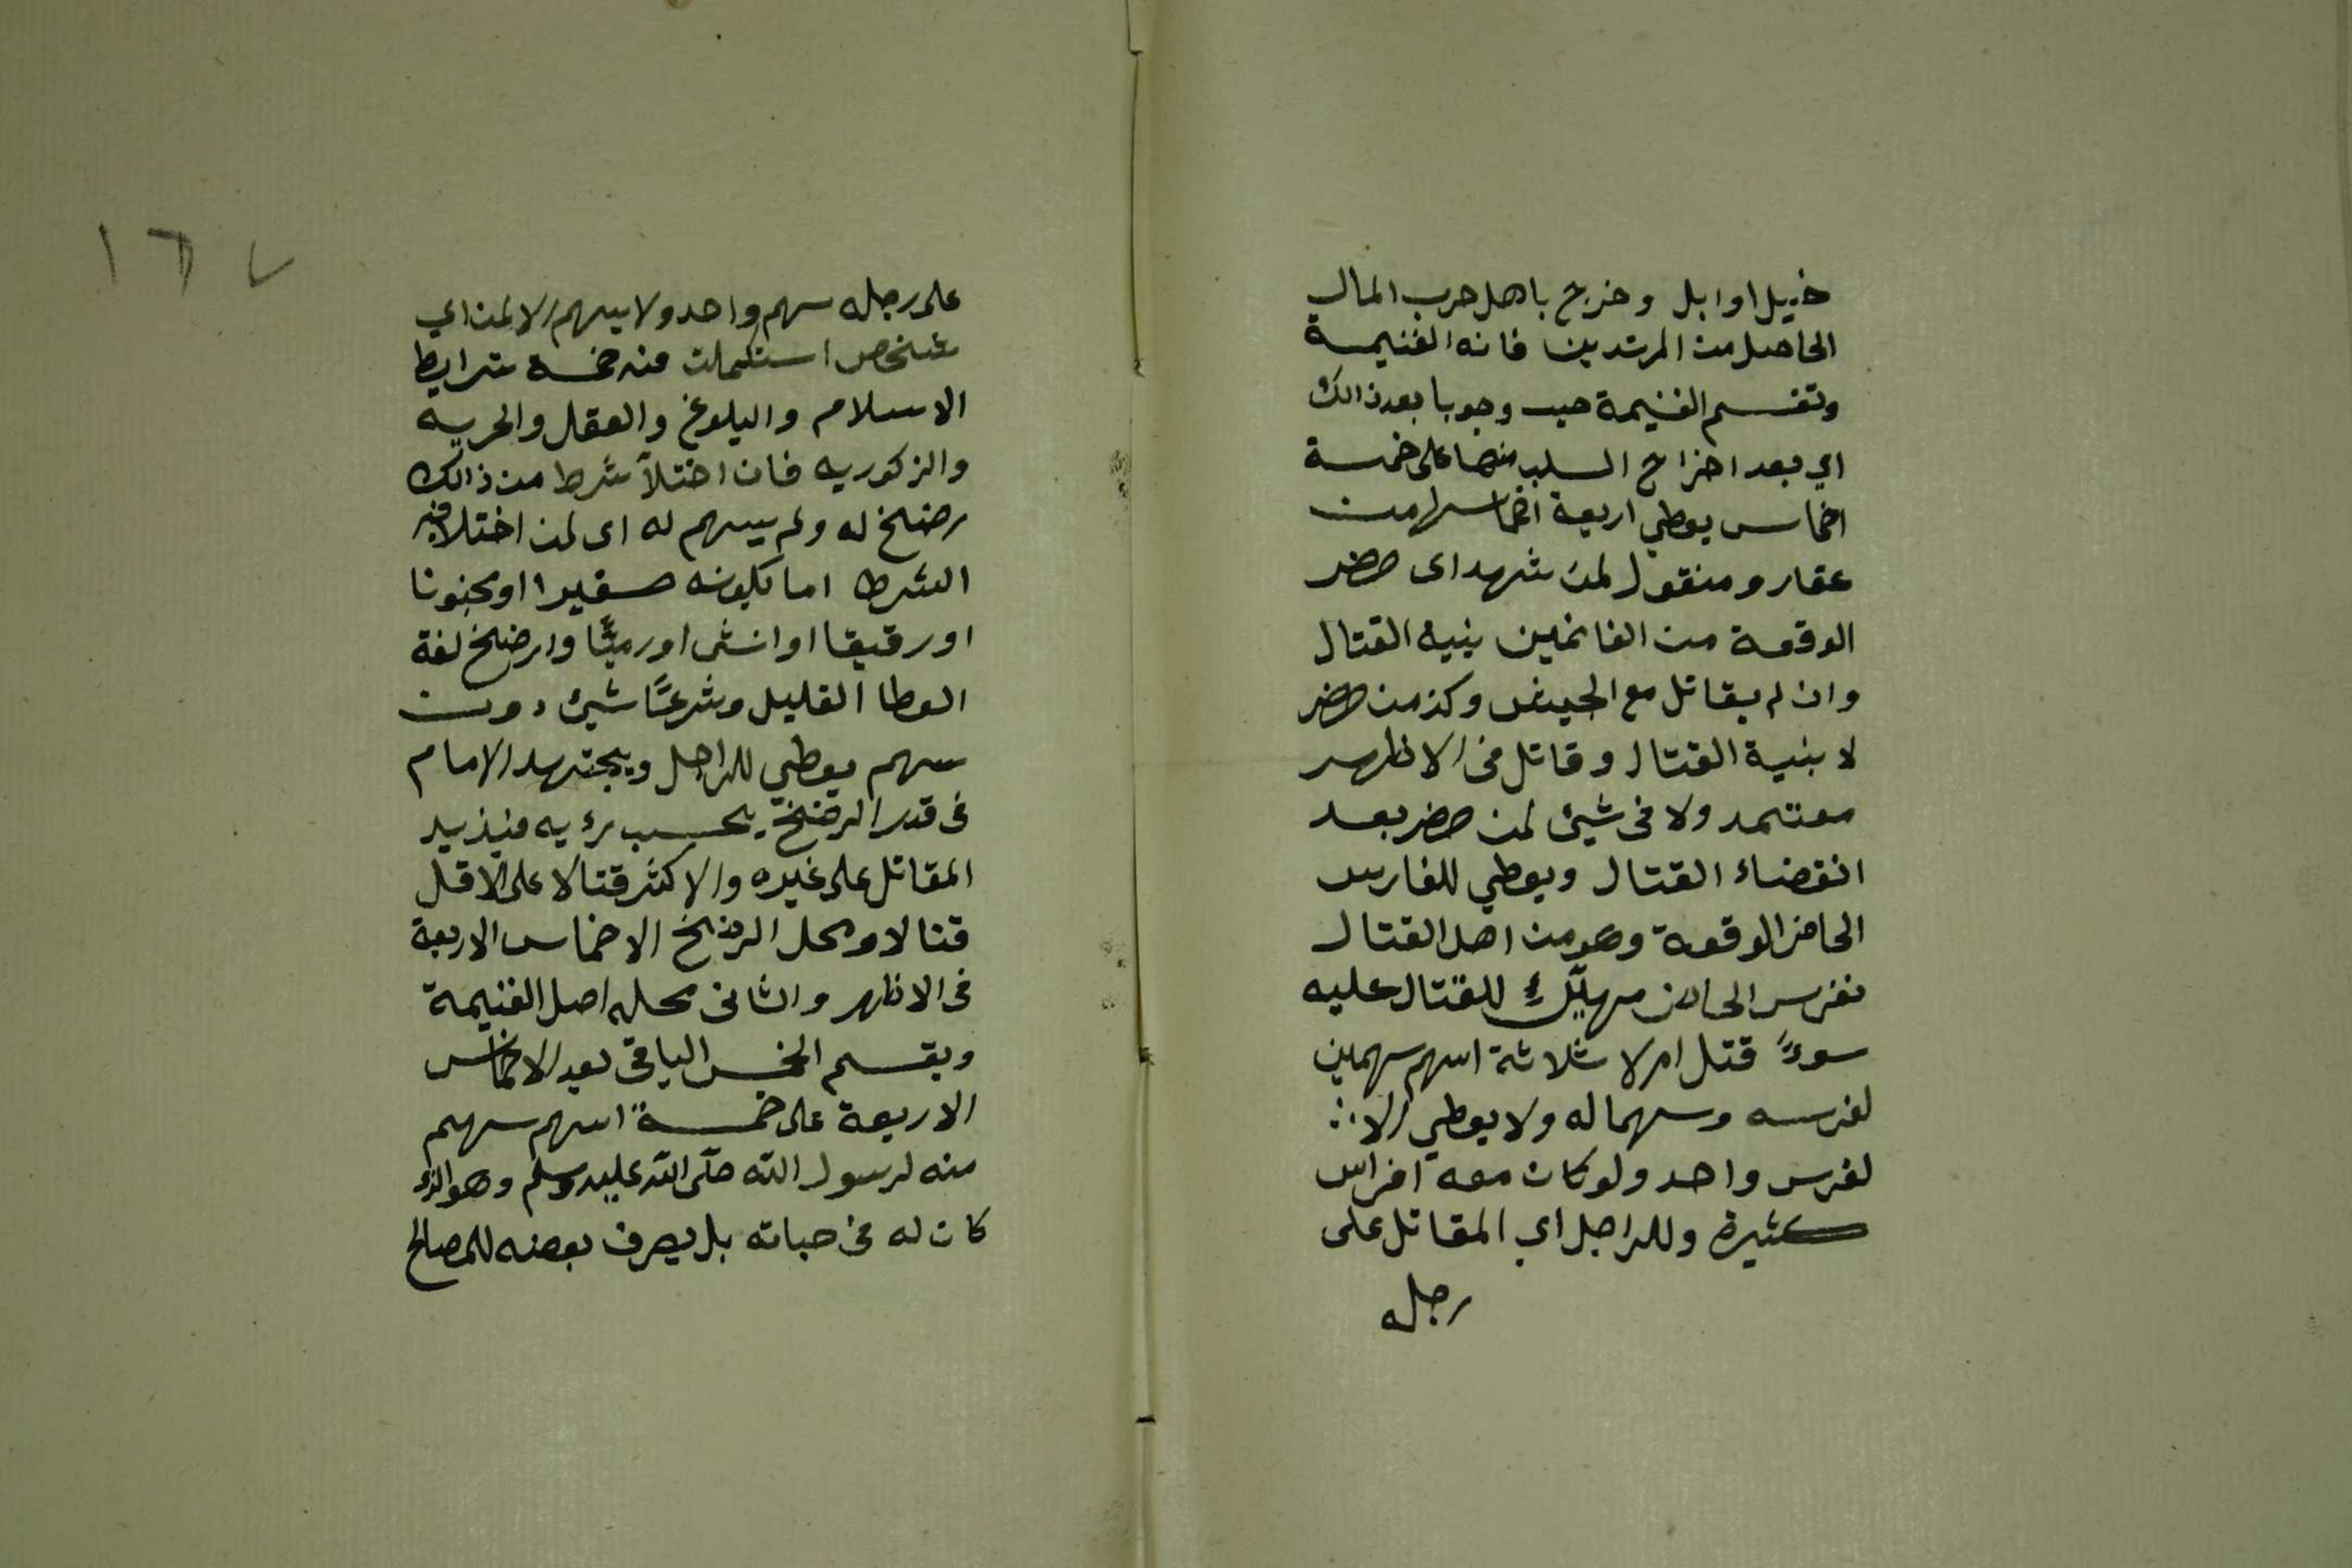 خيل او ابل وخرج باهل حرب المال
الحاصل من المرتدين فانه الغنيمة
وتقسم الغنيمة حيـ وجوبا بعد ذالك
اي بعد اخراج السلب منها على خمسة
اخماس يعطي اربعة اخماسها من
عقار ومنقول لمن شهد اى حضر
الوقعة من الغانمين بنية القتال
وان لم يقاتل مع الجيش وكذ من حضر
لا بنية القتال وقاتل في الاظهر
معتمد ولا في شيئ لمن حضر بعد
انقضاء القتال ويعطي للفارس
الحاضر الوقعة وهو من اهل القتال
بفرس الحاضر مهيئ للقتال عليه
سوءً قتل ام لا ثلاثة اسهم سهمين
لفرسه وسهما له ولا يعطي الا
لفرس واحد ولو كان معه افراس
كثيرة وللراجل اي المقاتل على
رجله
١٦٧
على رجله سهم واحد ولا يسهم الا لمن اي
شخص استكملت فيه خمسة شرايط
الاسلام والبلوغ والعقل والحريه
والزكوريه فان اختلآ شرط من ذالك
رضخ له ولم يسهم له اى لمن اختلا فيه
الشرط اما لكونه صغيرا او مجنونا
او رقيقا او انثى او رميًّا والرضخ لغة
العطا القليل وشرعًا شيئ دون
سهم يعطي للراجل ويجتهد الامام
في قدر الرضخ بحسب رءيه فيذيد
المقاتل على غيره والاكثر قتالا على الاقل
قتالا ومحل الرضخ الاخماس الاربعة
في الاظهر والثاني محله اصل الغنيمة
ويقسم الخمس الباقي بعد الاخماس
الاربعة على خمسة اسهم سهم
منه لرسول الله صلى الله عليه وسلم وهو الذي
كان له في حياته بل يصرف بعضه للمصالح